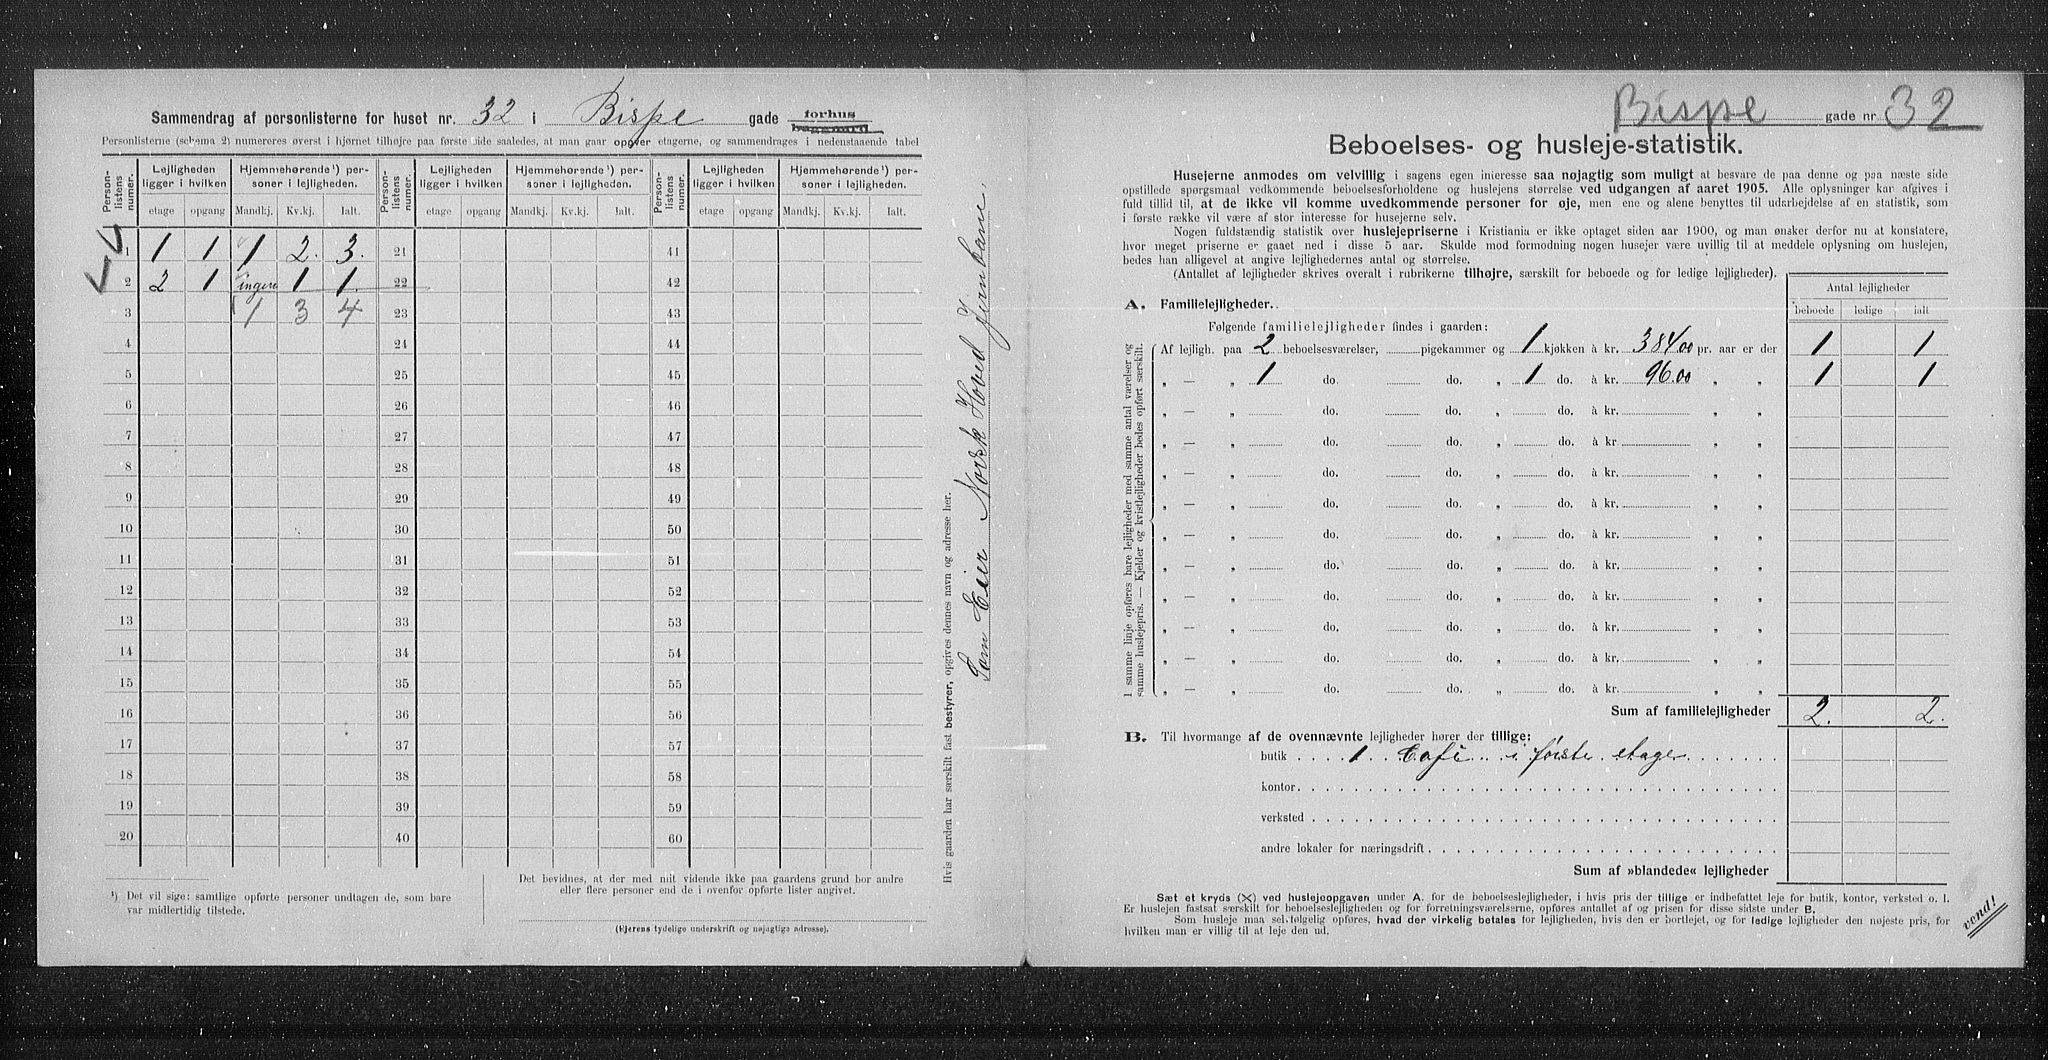 Sammendrag af personlisterne for huset nr. 32 i Bispe gade forhus
baggaard
Personlisterne (schema 2) numereres øverst i hjørnet tilhøjre paa første side saaledes, at man gaar opgver etagerne, og sammendrages i nedenstaaende tabel
Person-listens numer. Lejligheden ligger i hvilken Hjemmehørende¹) personer i lejligheden. Person-listens numer. Lejligheden ligger i hvilken Hjemmehørende¹) personer i lejligheden. Person-listens numer. Lejligheden ligger i hvilken Hjemmehørende¹) personer i lejligheden.
etage opgang Mandkj. Kv.kj. Ialt. etage opgang Mandkj. Kv.kj. Ialt. etage opgang Mandkj. Kv.kj. Ialt.
1 1 1 1 2. 3. 21 41
2 2 1 ingen 1 1. 22 42
3 1 3 4 23 43
4 24 44
5 25 45
6 26 46
7 27 47
8 28 48
9 29 49
10 30 50
11 31 51
12 32 52
13 33 53
14 34 54
15 35 55
16 36 56
17 37 57
18 38 58
19 39 59
20 40 60
¹) Det vil sige: samtlige opførte personer undtagen de, som bare
var midlertidig tilstede.
Det bevidnes, at der med mit vidende ikke paa gaardens grund bor andre
eller flere personer end de i ovenfor opførte lister angivet.
(Ejerens tydelige underskrift og nøjagtige adresse).
Hvis gaarden har særskilt fast bestyrer, opgives dennes navn og adresse her.
Som Eier Norsk Hoved Jernbane.
Bispe gade nr 32
Beboelses- og husleje-statistik.
Husejerne anmodes om velvillig i sagens egen interesse saa nøjagtig som muligt at besvare de paa denne og paa næste side
opstillede spørgsmaal vedkommende beboelsesforholdene og huslejens størrelse ved udgangen af aaret 1905. Alle oplysninger kar afgives i
fuld tillid til, at de ikke vil komme uvedkommende personer for øje, men ene og alene benyttes til udarbejdelse af en statistik, som
i første række vil være af stor interesse for husejerne selv.
Nogen fuldstændig statistik over huslejepriserne i Kristiania er ikke optaget siden aar 1900, og man ønsker derfor nu at konstatere,
hvor meget priserne er gaaet ned i disse 5 aar. Skulde mod formodning nogen husejer være uvillig til at meddele oplysning om huslejen,
bedes han alligevel at angive lejlighedernes antal og størrelse.
(Antallet af lejligheder skrives overalt i rubrikerne tilhøjre, særskilt for beboede og for ledige lejligheder).
Antal lejligheder
beboede ledige ialt
A. Familielejligheder.
Følgende familielejligheder findes i gaarden:
1 samme linje opføres bare lejligheder med samme antal værelser og
samme huslejepris. — Kjelder og kvistlejligheder bedes opført særskilt.
Af lejligh. paa 2 beboelsesværelser, pigekammer og 1 kjøkken à kr. 384.00 pr. aar er der 1 1
„ — „ 1 do. do. „ 1 do. à kr. 96.00 „ „ 1 1
„ — „ do. do. „ do. à kr. „ „
„ — „ do. do. „ do. à kr „ „
„ — „ do. do. „ do. à kr. „ „
„ — „ do. do. „ do. à kr. „ „
„ — „ do. do. „ do. à kr. „ „
„ — „ do. do. „ do. à kr. „ „
„ — „ do. do. „ do. à kr. „ „
„ — „ do. do. „ do. à kr. „ „
„ — „ do. do. „ do. à kr. „ „
„ — „ do. do. „ do. à kr. „ „
Sum af familielejligheder 2. 2.
B. Til hvormange af de ovennævnte lejligheder hører der tillige:
butik 1 Cafe i første etage
kontor
verksted
andre lokaler for næringsdrift
Sum af »blandede« lejligheder
Sæt et kryds (X) ved huslejeopgaven under A. for de beboelseslejligheder, i hvis pris der tillige er indbefattet leje for butik, kontor, verksted o. l.
Er huslejen fastsat særskilt for beboelseslejligheden og for forretningsværelserne, opføres antallet af og prisen for disse sidste under B.
Som husleje maa selvfølgelig opføres, hvad der virkelig betales for lejligheden, hvis den er bortlejet, og for ledige lejligheder den nøjeste pris, for
hvilken man er villig til at leje den ud.
vend!